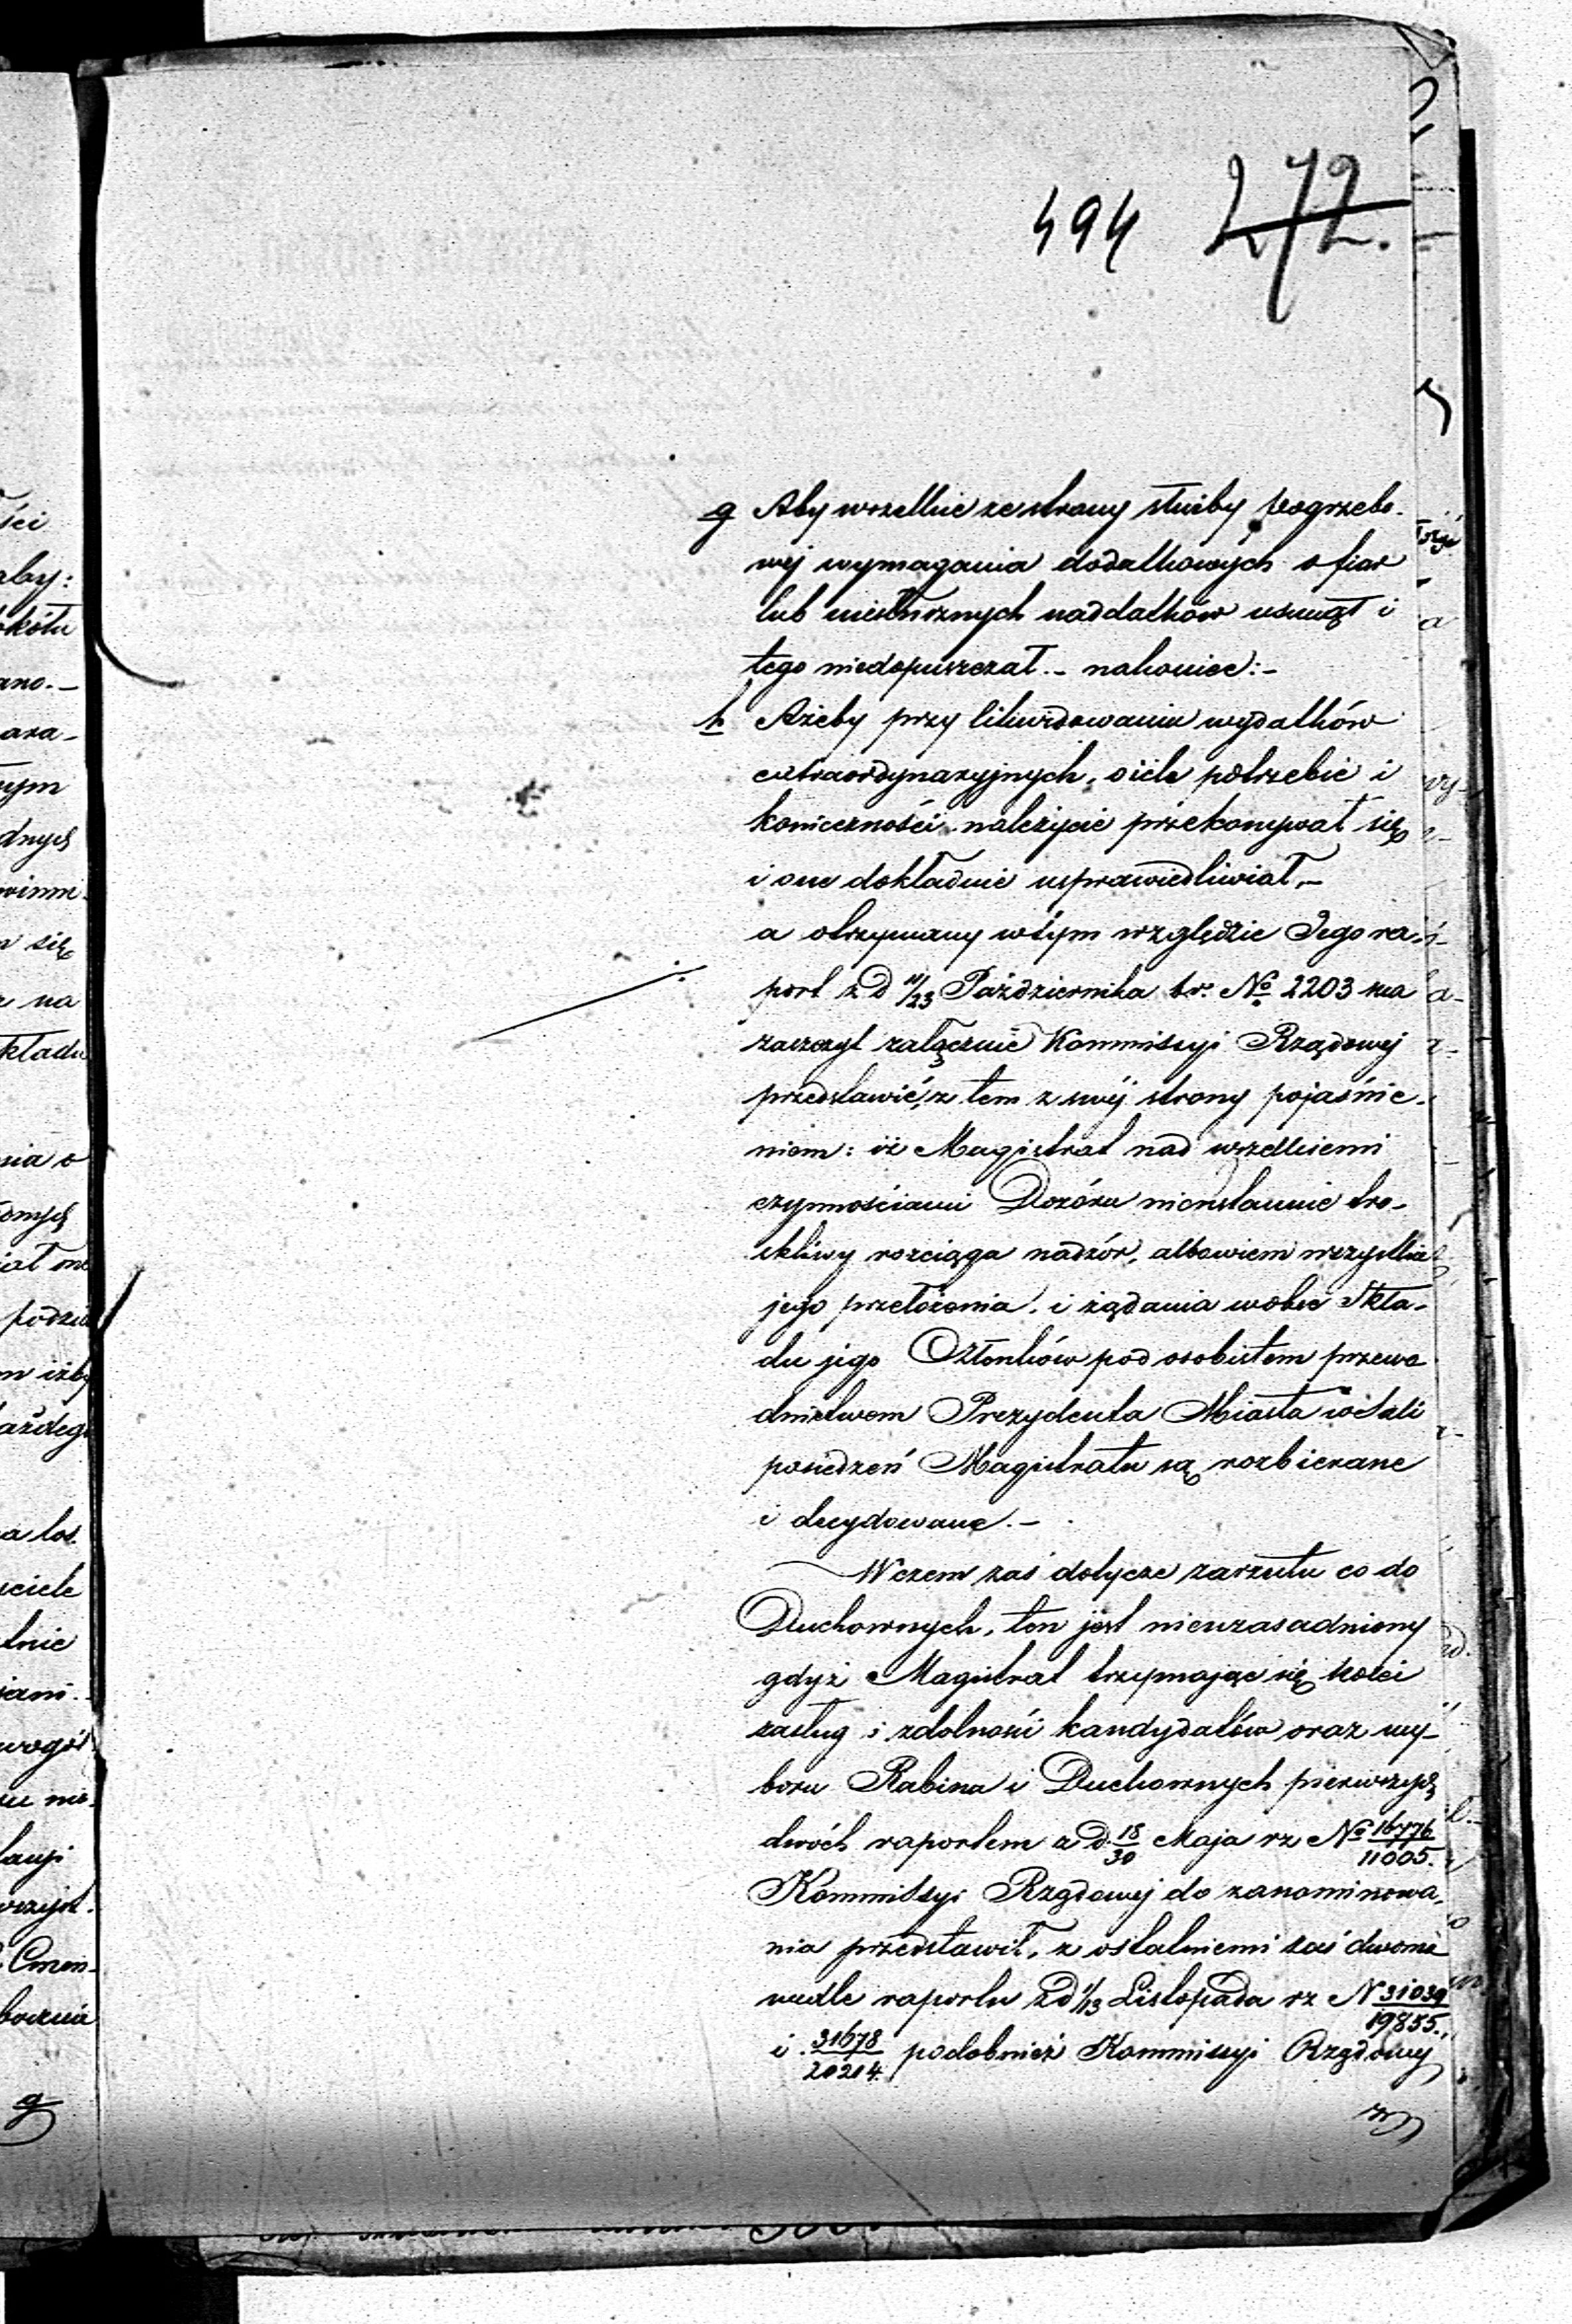 494 272.
g Aby wszelkie ze strony służby pogrzebo-
wej wymagania dodatkowych ofiar
lub niesłusznych naddatków usunął i
tego niedopuszczał. – nakoniec: –
h Ażeby przy likwidowaniu wydatków
extraordynaryjnych, o ile potrzebie i
konieczności należycie przekonywał się
i one dokładnie usprawiedliwiał, –
a otrzymany w tym względzie Jego ra-
port z d 11/23 Października t.r. No 2203 ma
zaszczyt załącznie Kommissyi Rządowej
przedstawić, z tem z swej strony pojaśnie-
niem: iż Magistrat nad wszelkiemi
czynnościami Dozóru nieustannie tro-
skliwy rozciąga nadzór, albowiem wszystkie
jego przełożenia i żądania wobec Skła-
du jego Członków pod osobistem przewo
dnictwem Prezydenta Miasta w Sali
posiedzeń Magistratu są rozbierane
i decydowane. –
W czem zaś dotycze zarzutu co do
Duchownych, ten jest nieuzasadniony
gdyż Magistrat trzymając się kolei
zasług i zdolności kandydatów oraz wy-
boru Rabina i Duchownych pierwszych
dwóch raportem z d. 18/30 Maja rz No 16776/11005.
Kommissyi Rządowej do zanominowa-
nia przedstawił, z ostatniemi zaś dwoma
wedle raportu z d 1/13 Listopada rz N 31039/19855.,
i 31678/20214. podobnież Kommissyi Rządowej